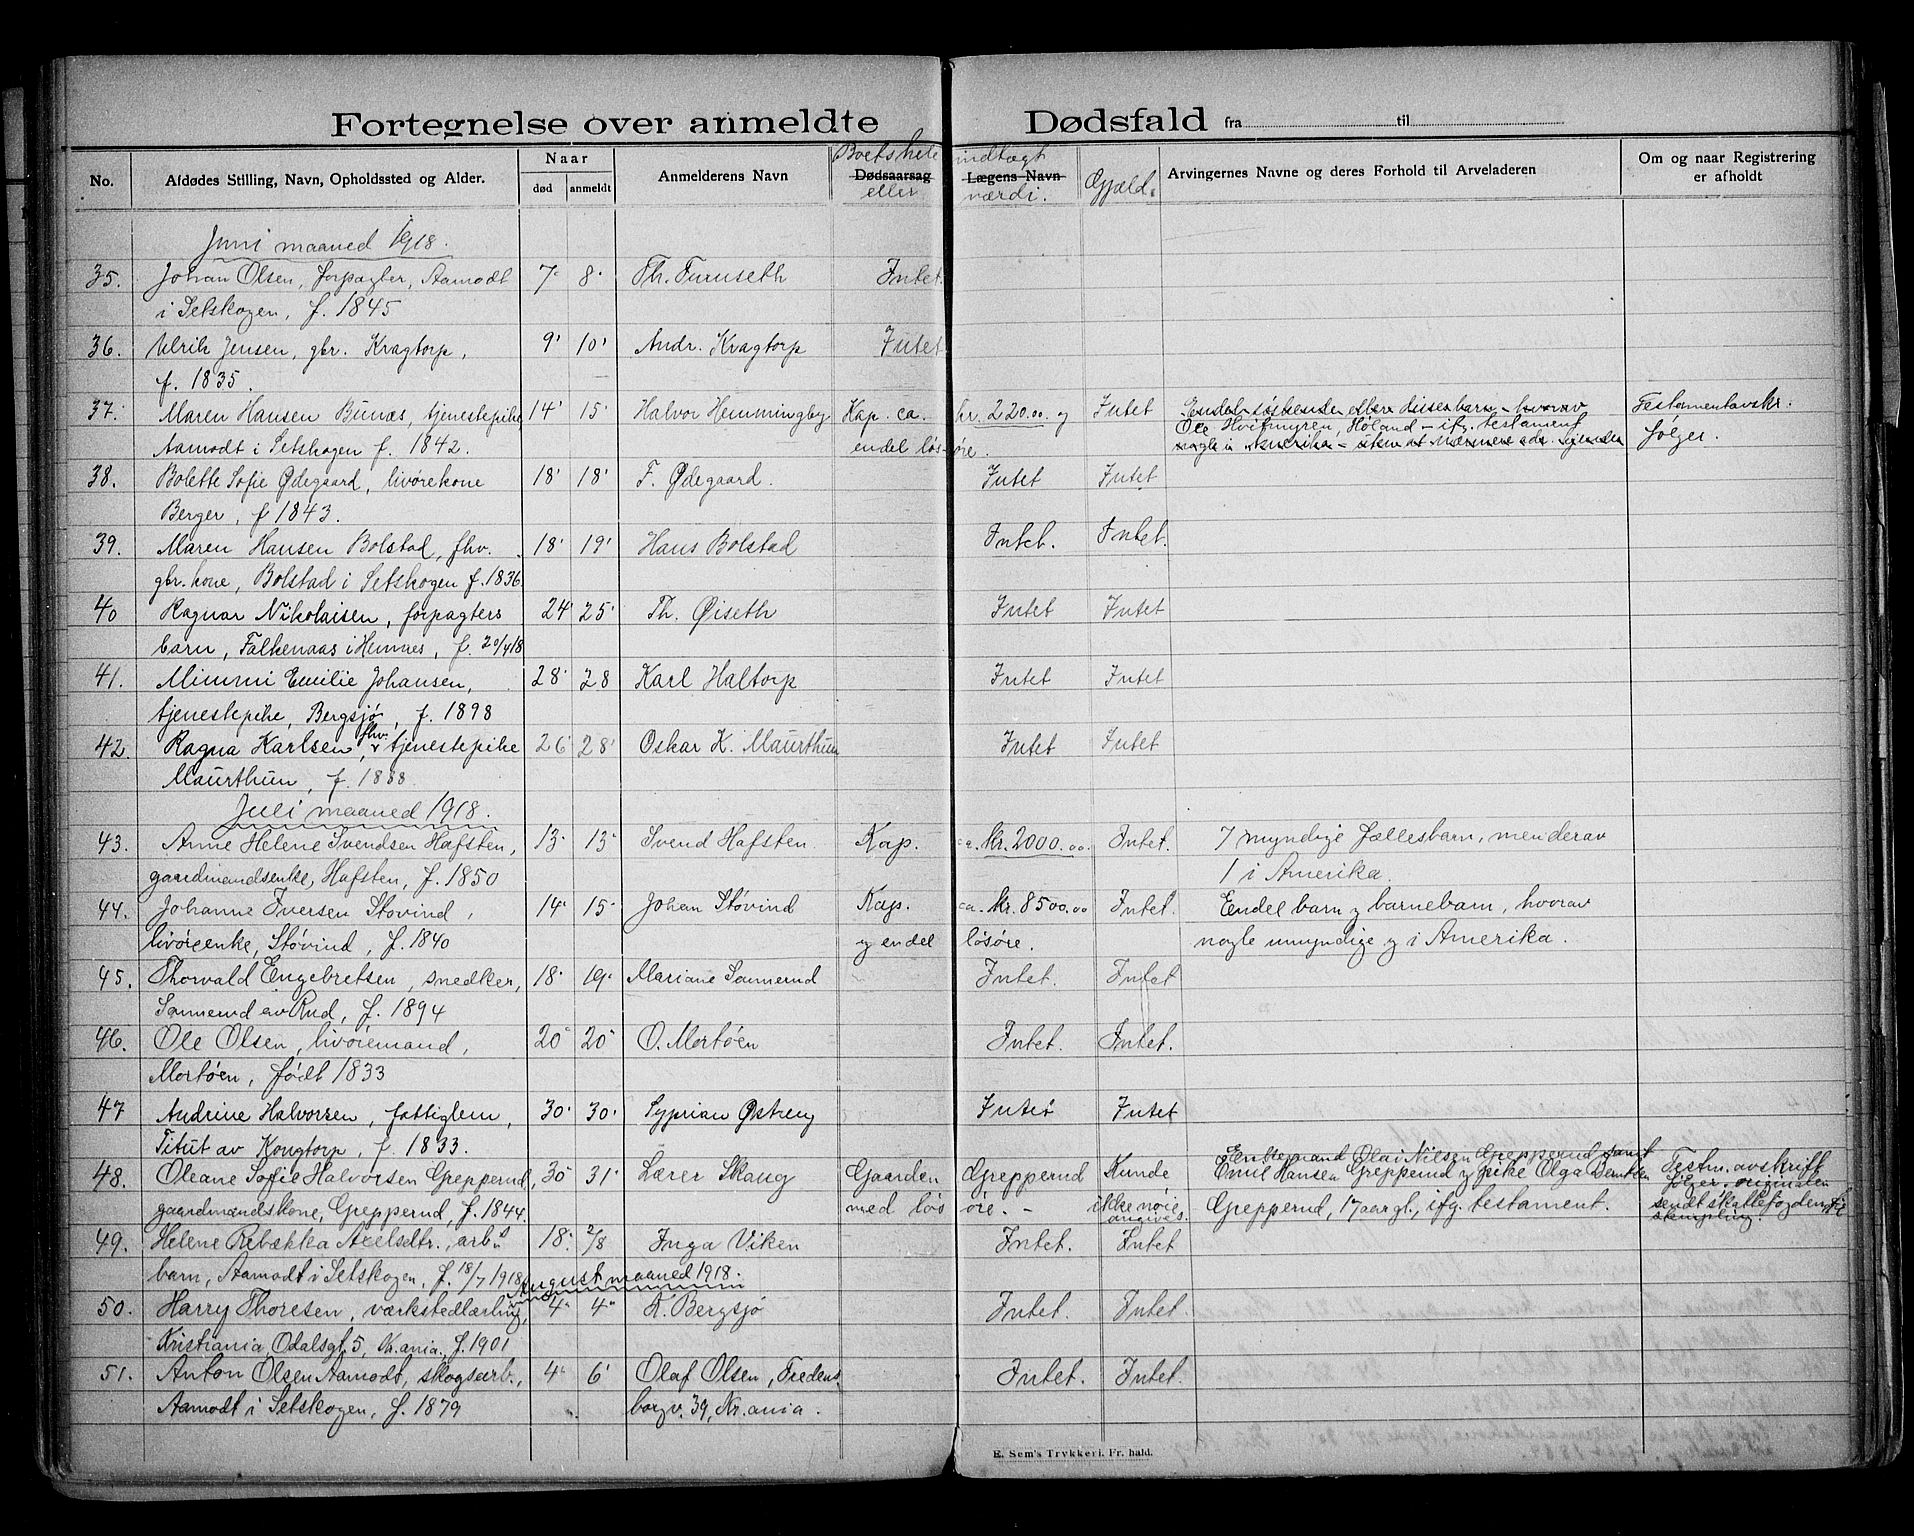 Fortegnelse over anmeldte Dødsfald fra til
No. Afdødes Stilling, Navn, Opholdssted og Alder. Naar død anmeldt Anmelderens Navn Dødsaarsag Lægens Navn Boets hele indtægt eller værdi. Gjæld. Arvingernes Navne og deres Forhold til Arveladeren Om og naar Registrering er afholdt
Juni maaned 1918.
35. Johan Olsen, forpagter, Aamodt 7 8 Th. Furuseth Intet.
i Setskogen, f. 1845
36. Ulrik Jensen, gbr. Kragtorp, 9 10 Andr. Kragtorp Intet
f. 1835.
37. Maren Hansen Bunæs, tjenestepike 14 15 Halvor Hemmingby Kap. ca. kr. 220.00 og Intet Endel søskende eller disses barn - hvorav Testamentavskr.
Ole Hvitmyren, Høland - ifg. testament
Aamodt i Setskogen f. 1842. endel løsøre. nogle i Amerika - uten at nærmere adr. følger.
38. Bolette Sofie Ødegaard, livørekone 18 18 F. Ødegaard. Intet Intet
Berger, f 1843.
39. Maren Hansen Bolstad, fhv. 18 19 Hans Bolstad Intet. Intet.
gbr. kone, Bolstad i Setskogen f. 1836
40 Ragnar Nikolaisen, forpagters 24 25 Th. Øiseth Intet Intet
barn, Falkenaas i Hemnes, f. 20/4 18
41. Mimmi Emilie Johansen, 28 28 Karl Haltorp Intet Intet
tjenestepike, Bergsjø, f. 1898
42. Ragna Karlsen, fhv. tjenestepike 26 28 Oskar K. Maurthun Intet Intet
Maurthun, f. 1888
Juli maaned 1918.
43. Anne Helene Svendsen Hafsten, 13 13 Svend Hafsten Kap. ca. kr. 2000.00 Intet. 7 myndige fællesbarn, men derav
gaardmandsenke, Hafsten, f. 1850 1 i Amerika.
44. Johanne Iversen Støvind, 14 15 Johan Støvind Kap. ca. kr. 8500.00 Intet. Endel barn og barnebarn, hvorav
livøreenke, Støvind, f. 1840 og endel løsøre. nogle umyndige og i Amerika.
45. Thorvald Engebretsen, snedker, 18 19 Mariane Sannerud Intet. Intet
Sannerud av Rud, f. 1894
46. Ole Olsen, livøremand, 20 20 O. Mortøen Intet. Intet.
Mortøen, født 1833
47 Andrine Halvorsen, fattiglem, 30 30 Syprian Østreng Intet Intet
Titut av Kongtorp, f. 1833.
Enkemand Olai Nilsen Grepperud samt
48. Oleane Sofie Halvorsen Grepperud, 30 31 Lærer Skaug Gaarden Grepperud Kunde Emil Hansen Grepperud og pike Olga Testm. avskrift
følger, originalen
gaardmandskone, Grepperud, f. 1844. med løsøre. - ikke nøie angives. Grepperud, 17 aar gl., ifg. testament. sendt skattefogden til stempling.
49. Helene Rebækka Axelsdtr., arb.s 18. 2/8 Inga Viken Intet. Intet
barn, Aamodt i Setskogen, f. 18/7 1918
August maaned 1918.
50. Harry Thoresen, værkstedlærling, 4 4 K. Bergsjø Intet. Intet.
Kristiania, Odalsgt. 5, Kr.ania., f. 1901
51. Anton Olsen Aamodt, skogsarb., 4 6 Olaf Olsen, Fredens Intet. Intet.
Aamodt i Setskogen, f. 1879 borgv. 39, Kr.ania.
E. Sem's Trykkeri. Fr. hald.